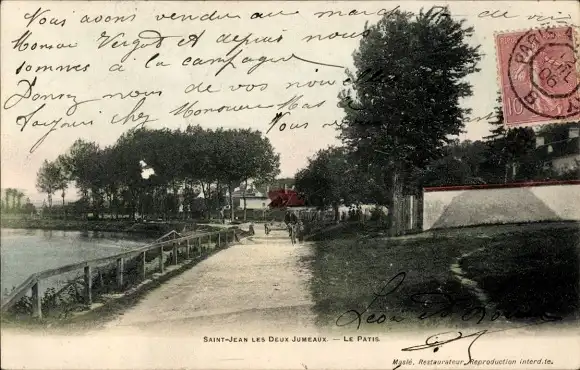 Nous avons vendu au marché de vin
Monsieur Vergot et depuis nous
sommes à la campagne
Donnez nous de vos nouvelles
Toujours chez Monsieur
Vous
PARIS
10
Léon et
SAINT-JEAN LES DEUX JUMEAUX. — LE PATIS
Maslé, Restaurateur, Reproduction interdite.